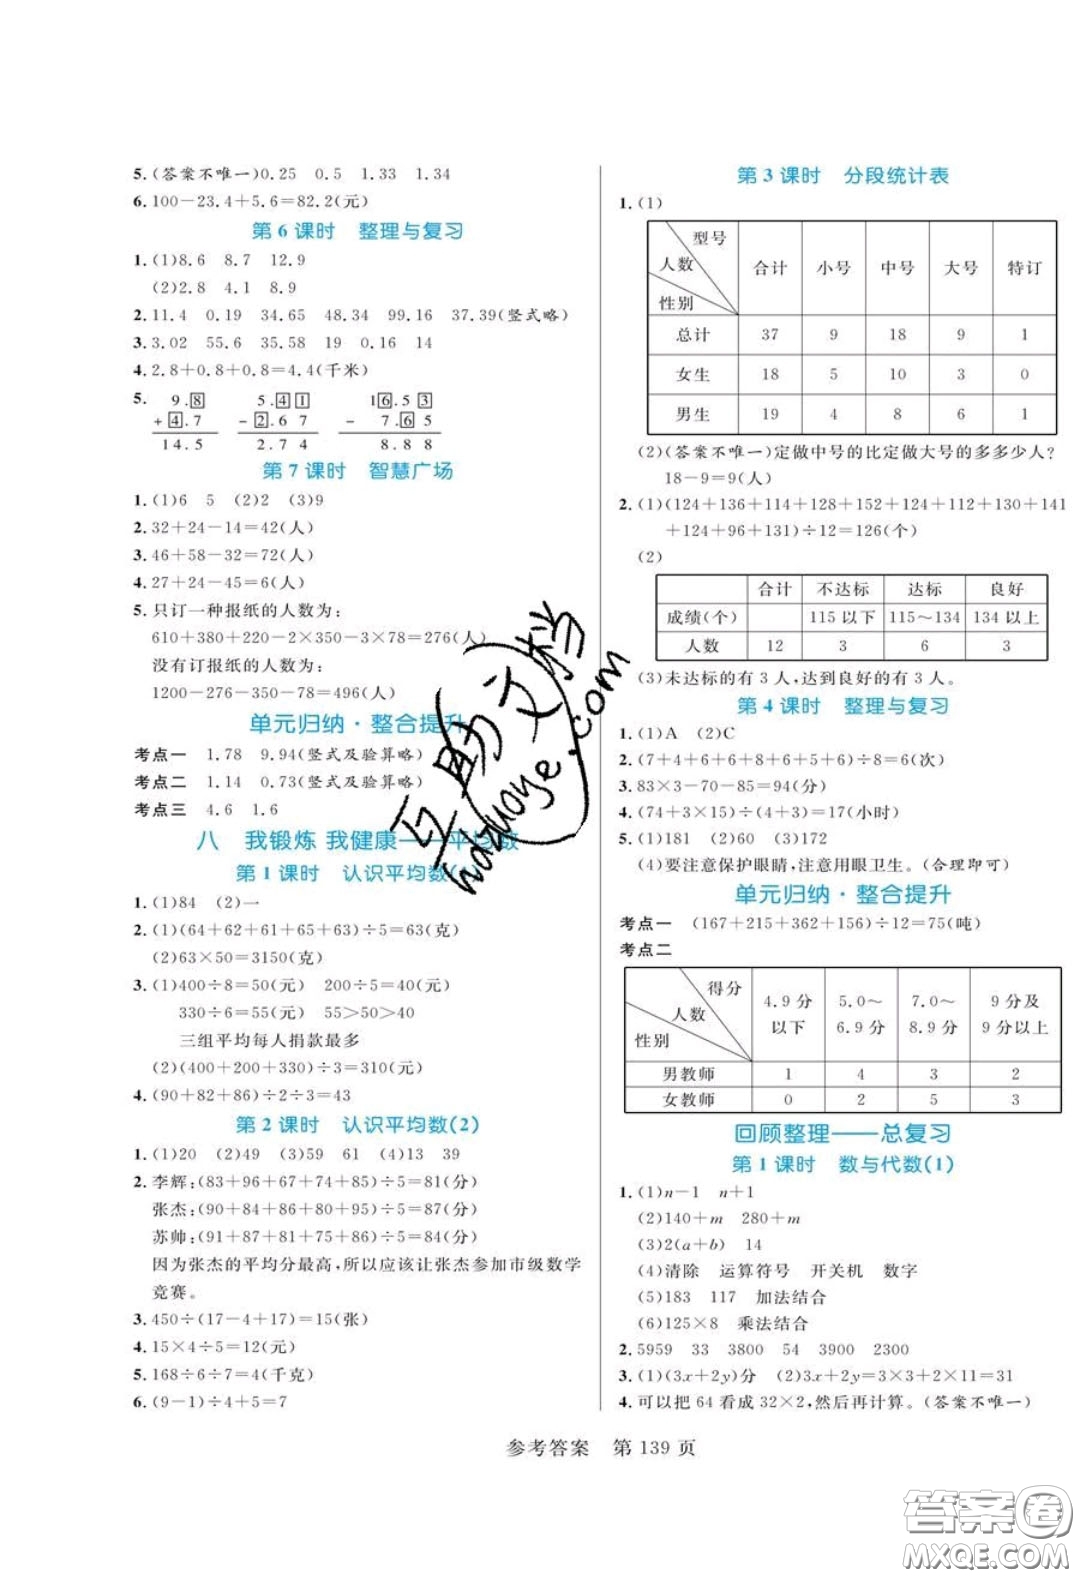 5.(答案不唯一)0.25 0.5 1.33 1.34
6.100-23.4+5.6=82.2(元)
第6课时 整理与复习
1.(1)8.6 8.7 12.9
(2)2.8 4.1 8.9
2.11.4 0.19 34.65 48.34 99.16 37.39(竖式略)
3.3.02 55.6 35.58 19 0.16 14
4.2.8+0.8+0.8=4.4(千米)
5. 9.8 5.41 16.53
+4.7 -2.67 -7.65
14.5 2.74 8.88
第7课时 智慧广场
1.(1)6 5 (2)2 (3)9
2.32+24-14=42(人)
3.46+58-32=72(人)
4.27+24-45=6(人)
5.只订一种报纸的人数为:
610+380+220-2×350-3×78=276(人)
没有订报纸的人数为:
1200-276-350-78=496(人)
单元归纳·整合提升
考点一 1.78 9.94(竖式及验算略)
考点二 1.14 0.73(竖式及验算略)
考点三 4.6 1.6
八 我锻炼 我健康——平均数
第1课时 认识平均数(1)
1.(1)84 (2)一
2.(1)(64+62+61+65+63)÷5=63(克)
(2)63×50=3150(克)
3.(1)400÷8=50(元) 200÷5=40(元)
330÷6=55(元) 55>50>40
三组平均每人捐款最多
(2)(400+200+330)÷3=310(元)
4.(90+82+86)÷2÷3=43
第2课时 认识平均数(2)
1.(1)20 (2)49 (3)59 61 (4)13 39
2.李辉:(83+96+67+74+85)÷5=81(分)
张杰:(90+84+86+80+95)÷5=87(分)
苏帅:(91+87+81+75+86)÷5=84(分)
因为张杰的平均分最高,所以应该让张杰参加市级数学
竞赛。
3.450÷(17-4+17)=15(张)
4.15×4÷5=12(元)
5.168÷6÷7=4(千克)
6.(9-1)÷4+5=7
第3课时 分段统计表
1.(1)
型号 人数 性别 合计 小号 中号 大号 特订
总计 37 9 18 9 1
女生 18 5 10 3 0
男生 19 4 8 6 1
(2)(答案不唯一)定做中号的比定做大号的多多少人?
18-9=9(人)
2.(1)(124+136+114+128+152+124+112+130+141
+124+96+131)÷12=126(个)
(2)
合计 不达标 达标 良好
成绩(个) 115以下 115~134 134以上
人数 12 3 6 3
(3)未达标的有3人,达到良好的有3人。
第4课时 整理与复习
1.(1)A (2)C
2.(7+4+6+6+8+6+5+6)÷8=6(次)
3.83×3-70-85=94(分)
4.(74+3×15)÷(4+3)=17(小时)
5.(1)181 (2)60 (3)172
(4)要注意保护眼睛,注意用眼卫生。(合理即可)
单元归纳·整合提升
考点一 (167+215+362+156)÷12=75(吨)
考点二
得分 人数 性别 4.9分以下 5.0~6.9分 7.0~8.9分 9分及9分以上
男教师 1 4 3 2
女教师 0 2 5 3
回顾整理——总复习
第1课时 数与代数(1)
1.(1)n-1 n+1
(2)140+m 280+m
(3)2(a+b) 14
(4)清除 运算符号 开关机 数字
(5)183 117 加法结合
(6)125×8 乘法结合
2.5959 33 3800 54 3900 2300
3.(1)(3x+2y)分 (2)3x+2y=3×3+2×11=31
4.可以把64看成32×2,然后再计算。(答案不唯一)
参考答案 第139页
互助文档
huzuoye.com
答案卷
MXQE.COM